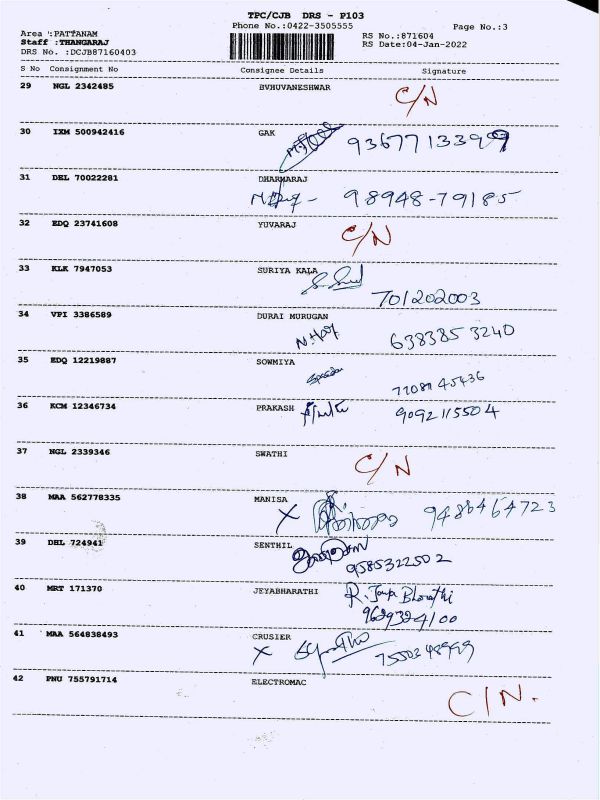 TPC/CJB DRS - P103
Phone No.:0422-3505555 Page No.:3
Area :PATTANAM RS No.:871604
Staff :THANGARAJ RS Date:04-Jan-2022
DRS No. :DCJB87160403
S No Consignment No Consignee Details Signature
29 NGL 2342485 BVHUVANESHWAR C/N
30 IXM 500942416 GAK 9367713399
31 DEL 70022281 DHARMARAJ
98948-79185
32 EDQ 23741608 YUVARAJ C/N
33 KLK 7947053 SURIYA KALA
701202003
34 VPI 3386589 DURAI MURUGAN
6383853240
35 EDQ 12219887 SOWMIYA
36 KCM 12346734 PRAKASH 9092115504
37 NGL 2339346 SWATHI C/N
38 MAA 562778335 MANISA
X 9486464723
39 DEL 724941 SENTHIL
9585322502
40 MRT 171370 JEYABHARATHI R. Jaya Bharathi
9629324100
41 MAA 564838493 CRUSIER
X
42 PNU 755791714 ELECTROMAC C/N.